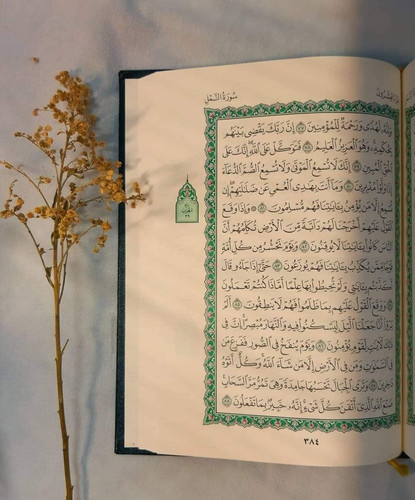 سُورَةُ النَّمْلِ
وَإِنَّهُۥ لَهُدًى وَرَحْمَةٌ لِّلْمُؤْمِنِينَ ٧٧ إِنَّ رَبَّكَ يَقْضِى بَيْنَهُم
بِحُكْمِهِۦ وَهُوَ ٱلْعَزِيزُ ٱلْعَلِيمُ ٧٨ فَتَوَكَّلْ عَلَى ٱللَّهِ إِنَّكَ عَلَى
ٱلْحَقِّ ٱلْمُبِينِ ٧٩ إِنَّكَ لَا تُسْمِعُ ٱلْمَوْتَىٰ وَلَا تُسْمِعُ ٱلصُّمَّ ٱلدُّعَآءَ
إِذَا وَلَّوْا۟ مُدْبِرِينَ ٨٠ وَمَآ أَنتَ بِهَٰدِى ٱلْعُمْىِ عَن ضَلَٰلَتِهِمْ إِن
تُسْمِعُ إِلَّا مَن يُؤْمِنُ بِـَٔايَٰتِنَا فَهُم مُّسْلِمُونَ ٨١ ۞ وَإِذَا وَقَعَ
ٱلْقَوْلُ عَلَيْهِمْ أَخْرَجْنَا لَهُمْ دَآبَّةً مِّنَ ٱلْأَرْضِ تُكَلِّمُهُمْ أَنَّ
ٱلنَّاسَ كَانُوا۟ بِـَٔايَٰتِنَا لَا يُوقِنُونَ ٨٢ وَيَوْمَ نَحْشُرُ مِن كُلِّ أُمَّةٍ
فَوْجًا مِّمَّن يُكَذِّبُ بِـَٔايَٰتِنَا فَهُمْ يُوزَعُونَ ٨٣ حَتَّىٰٓ إِذَا جَآءُو قَالَ
أَكَذَّبْتُم بِـَٔايَٰتِى وَلَمْ تُحِيطُوا۟ بِهَا عِلْمًا أَمَّاذَا كُنتُمْ تَعْمَلُونَ
٨٤ وَوَقَعَ ٱلْقَوْلُ عَلَيْهِم بِمَا ظَلَمُوا۟ فَهُمْ لَا يَنطِقُونَ ٨٥
أَلَمْ يَرَوْا۟ أَنَّا جَعَلْنَا ٱلَّيْلَ لِيَسْكُنُوا۟ فِيهِ وَٱلنَّهَارَ مُبْصِرًا إِنَّ فِى
ذَٰلِكَ لَـَٔايَٰتٍ لِّقَوْمٍ يُؤْمِنُونَ ٨٦ وَيَوْمَ يُنفَخُ فِى ٱلصُّورِ فَفَزِعَ مَن
فِى ٱلسَّمَٰوَٰتِ وَمَن فِى ٱلْأَرْضِ إِلَّا مَن شَآءَ ٱللَّهُ وَكُلٌّ أَتَوْهُ
دَٰخِرِينَ ٨٧ وَتَرَى ٱلْجِبَالَ تَحْسَبُهَا جَامِدَةً وَهِىَ تَمُرُّ مَرَّ ٱلسَّحَابِ
صُنْعَ ٱللَّهِ ٱلَّذِىٓ أَتْقَنَ كُلَّ شَىْءٍ إِنَّهُۥ خَبِيرٌۢ بِمَا تَفْعَلُونَ ٨٨
الحزب
٣٩
٣٨٤